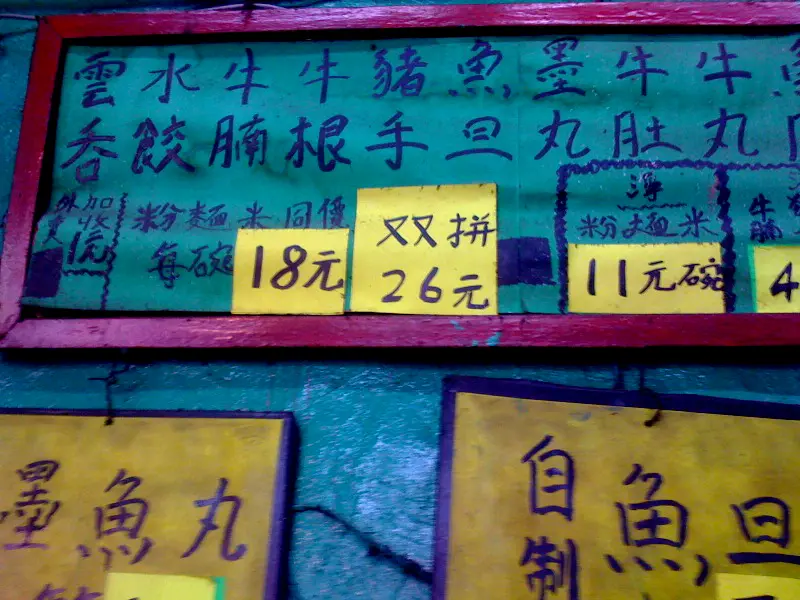 雲水牛牛豬魚墨牛牛魚
吞餃腩根手旦丸肚丸
外賣加收1元
粉麵米同價
每碗18元
双双拼
26元
淨
粉麵米
11元碗
牛腩
4
墨魚丸
自制
魚旦